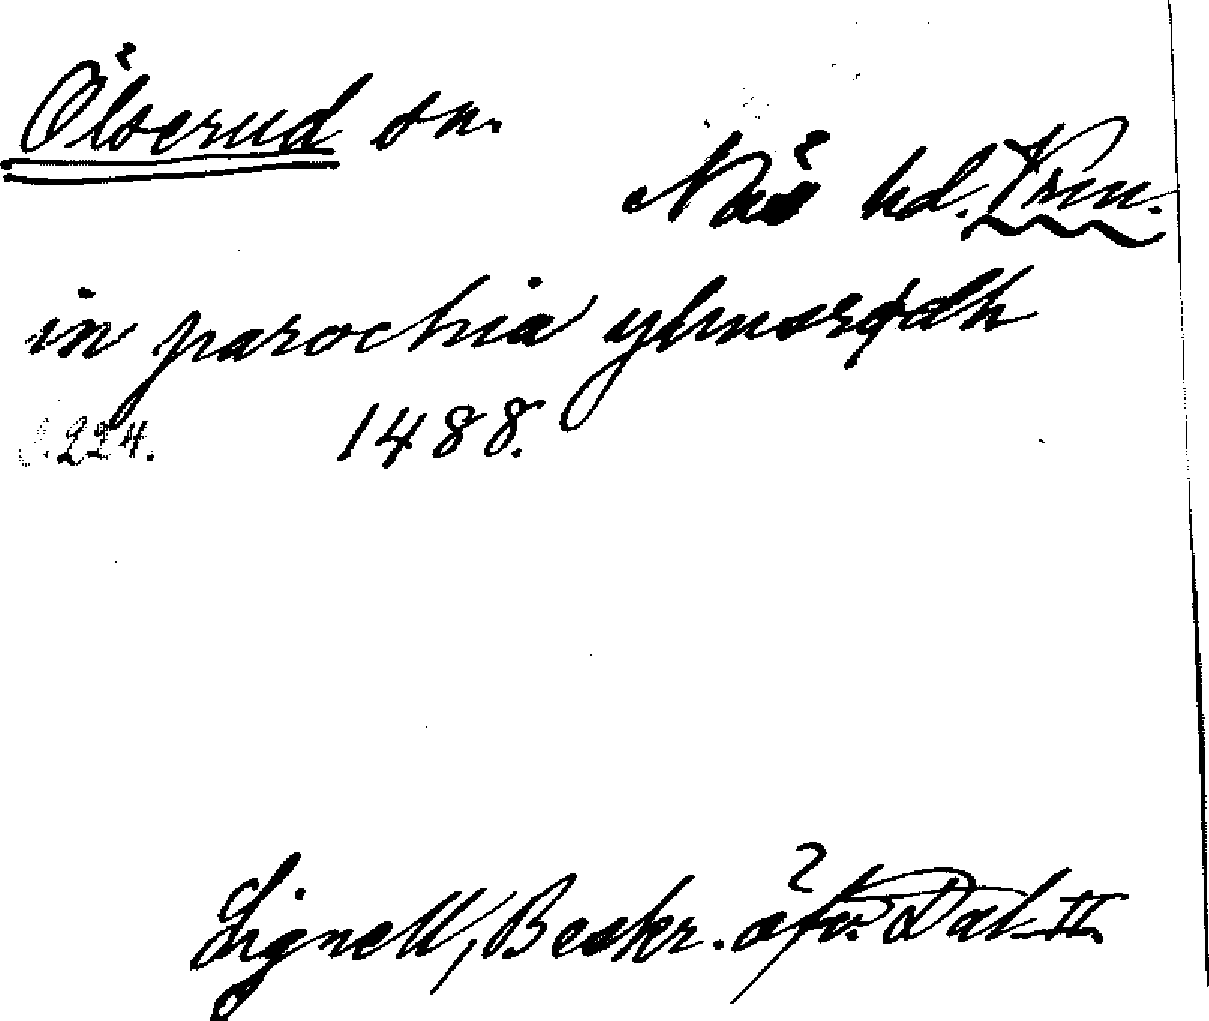 Ölserud sn.
Näs hd. Vrm.
in parochia ylmsrødh
S. 224. 1488.
Lignell, Beskr. öfv. Dal II.